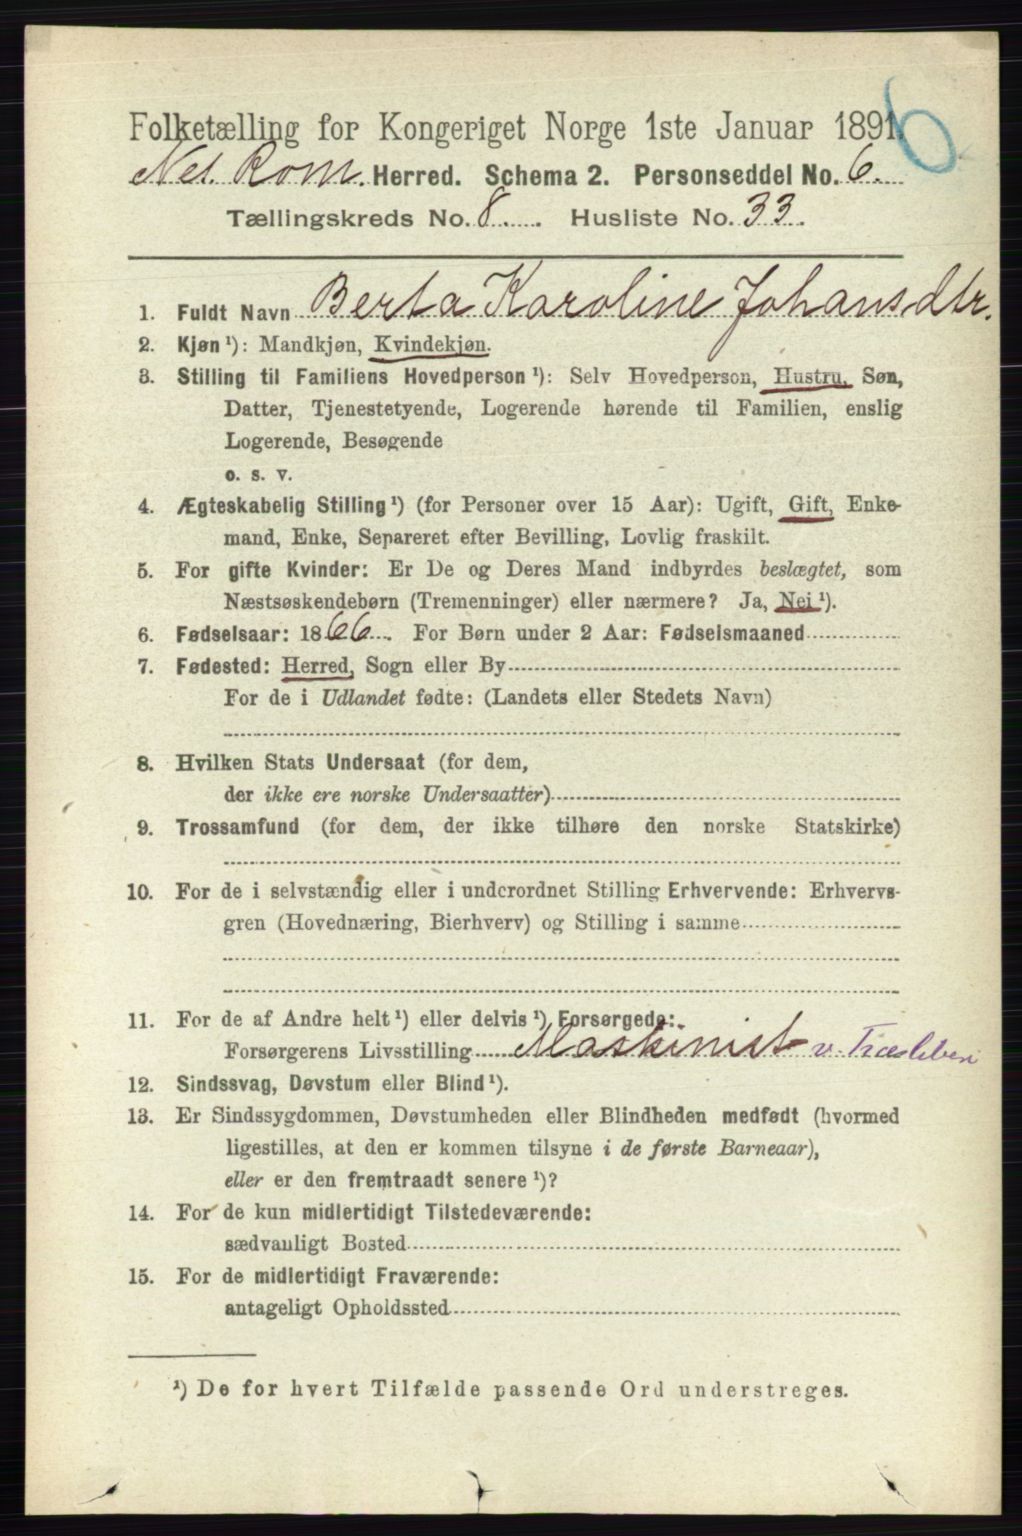 6
Folketælling for Kongeriget Norge 1ste Januar 1891.
Nes. Rom. Herred. Schema 2. Personseddel No. 6.
Tællingskreds No. 8. Husliste No. 33.
1. Fuldt Navn Berta Karoline Johansdtr.
2. Kjøn ¹): Mandkjøn, Kvindekjøn.
3. Stilling til Familiens Hovedperson ¹): Selv Hovedperson, Hustru, Søn,
Datter, Tjenestetyende, Logerende hørende til Familien, enslig
Logerende, Besøgende
o. s. v.
4. Ægteskabelig Stilling ¹) (for Personer over 15 Aar): Ugift, Gift, Enke-
mand, Enke, Separeret efter Bevilling, Lovlig fraskilt.
5. For gifte Kvinder: Er De og Deres Mand indbyrdes beslægtet, som
Næstsøskendebørn (Tremenninger) eller nærmere? Ja, Nei ¹).
6. Fødselsaar: 1866. For Børn under 2 Aar: Fødselsmaaned
7. Fødested: Herred, Sogn eller By
For de i Udlandet fødte: (Landets eller Stedets Navn)
8. Hvilken Stats Undersaat (for dem,
der ikke ere norske Undersaatter)
9. Trossamfund (for dem, der ikke tilhøre den norske Statskirke)
10. For de i selvstændig eller i underordnet Stilling Erhvervende: Erhvervs-
gren (Hovednæring, Bierhverv) og Stilling i samme
11. For de af Andre helt ¹) eller delvis ¹) Forsørgede:
Forsørgerens Livsstilling Maskinist v. Træsliberi
12. Sindssvag, Døvstum eller Blind ¹).
13. Er Sindssygdommen, Døvstumheden eller Blindheden medfødt (hvormed
ligestilles, at den er kommen tilsyne i de første Barneaar),
eller er den fremtraadt senere ¹)?
14. For de kun midlertidigt Tilstedeværende:
sædvanligt Bosted
15. For de midlertidigt Fraværende:
antageligt Opholdssted
¹) De for hvert Tilfælde passende Ord understreges.